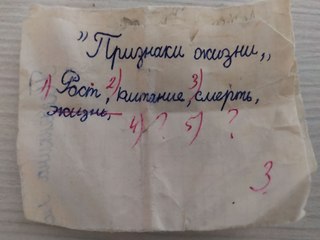 "Признаки жизни„
1) Рост, 2) питание, 3) смерть,
жизнь, 4) ? 5) ?
3